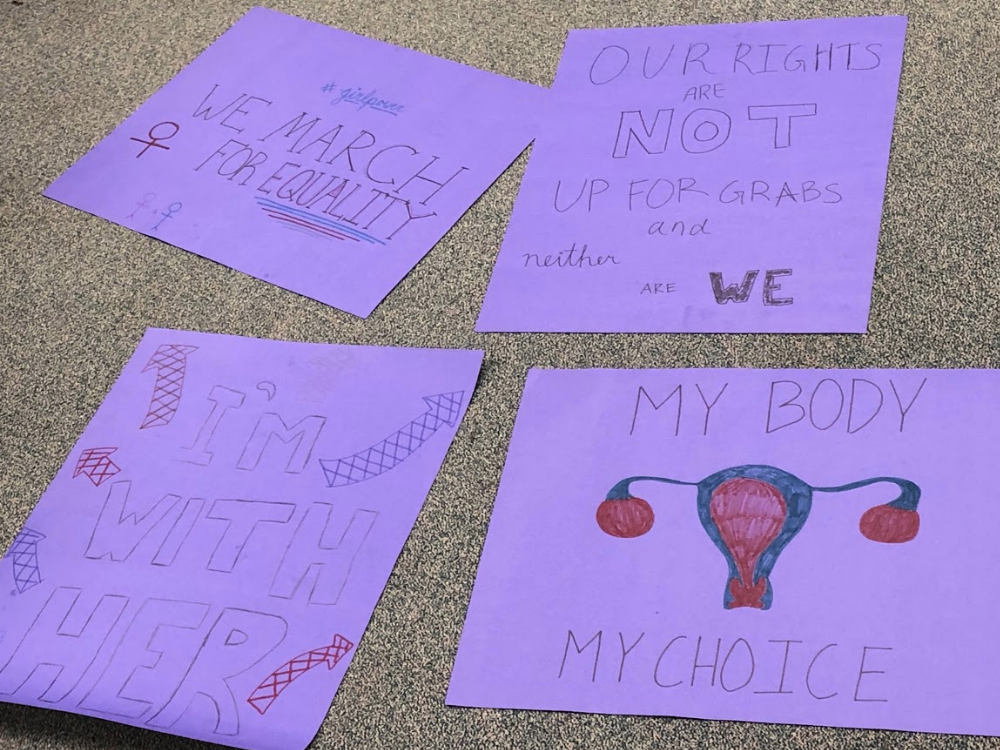 #girlpower
WE MARCH
FOR EQUALITY
OUR RIGHTS
ARE
NOT
UP FOR GRABS
and
neither
ARE WE
I'M
WITH
HER
MY BODY
MY CHOICE